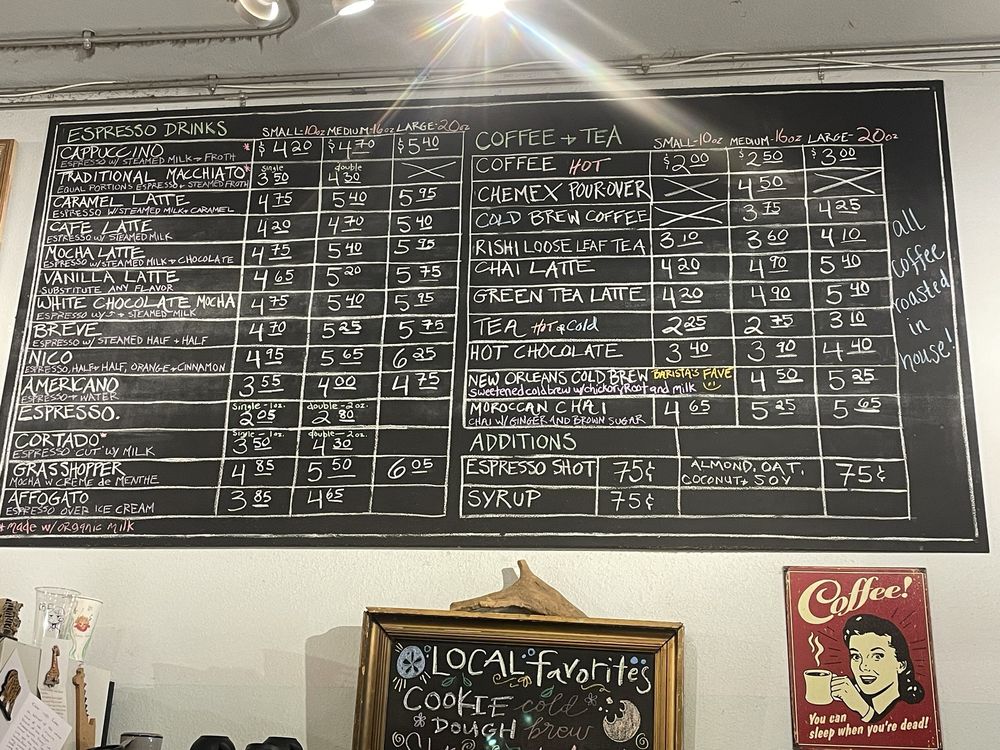 ESPRESSO DRINKS SMALL-10oz MEDIUM-16oz LARGE-20oz
CAPPUCCINO * $4.20 $4.70 $5.40
ESPRESSO W/ STEAMED MILK + FROTH
TRADITIONAL MACCHIATO* single 3.50 double 4.30
EQUAL PORTIONS ESPRESSO + STEAMED FROTH
CARAMEL LATTE 4.75 5.40 5.95
ESPRESSO W/STEAMED MILK + CARAMEL
CAFE LATTE 4.20 4.70 5.40
ESPRESSO W/ STEAMED MILK
MOCHA LATTE 4.75 5.40 5.95
ESPRESSO W/STEAMED MILK + CHOCOLATE
VANILLA LATTE 4.65 5.20 5.75
SUBSTITUTE ANY FLAVOR
WHITE CHOCOLATE MOCHA 4.75 5.40 5.95
ESPRESSO W/ + STEAMED MILK
BREVE 4.70 5.25 5.75
ESPRESSO W/ STEAMED HALF + HALF
NICO 4.95 5.65 6.25
ESPRESSO, HALF + HALF, ORANGE + CINNAMON
AMERICANO 3.55 4.00 4.75
ESPRESSO + WATER
ESPRESSO. single-1oz. 2.05 double-2oz. 2.80
CORTADO* single-1oz. 3.50 double-2oz. 4.30
ESPRESSO "CUT" W/ MILK
GRASSHOPPER 4.85 5.50 6.05
MOCHA W CRÈME de MENTHE
AFFOGATO 3.85 4.65
ESPRESSO OVER ICE CREAM
*made w/ organic milk
COFFEE + TEA SMALL-10oz MEDIUM-16oz LARGE-20oz
COFFEE HOT $2.00 $2.50 $3.00
CHEMEX POUROVER 4.50
COLD BREW COFFEE 3.75 4.25
RISHI LOOSE LEAF TEA 3.10 3.60 4.10
CHAI LATTE 4.20 4.90 5.40
GREEN TEA LATTE 4.20 4.90 5.40
TEA Hot & Cold 2.25 2.75 3.10
HOT CHOCOLATE 3.40 3.90 4.40
NEW ORLEANS COLD BREW BARISTA'S FAVE 4.50 5.25
sweetened cold brew w/chickory root and milk
MOROCCAN CHAI 4.65 5.25 5.65
CHAI W/ GINGER AND BROWN SUGAR
ADDITIONS
ESPRESSO SHOT 75¢ ALMOND, OAT, COCONUT + SOY 75¢
SYRUP 75¢
all
coffee
roasted
in
house!
LOCAL favorites
COOKIE cold
DOUGH brew
Coffee!
You can
sleep when you're dead!